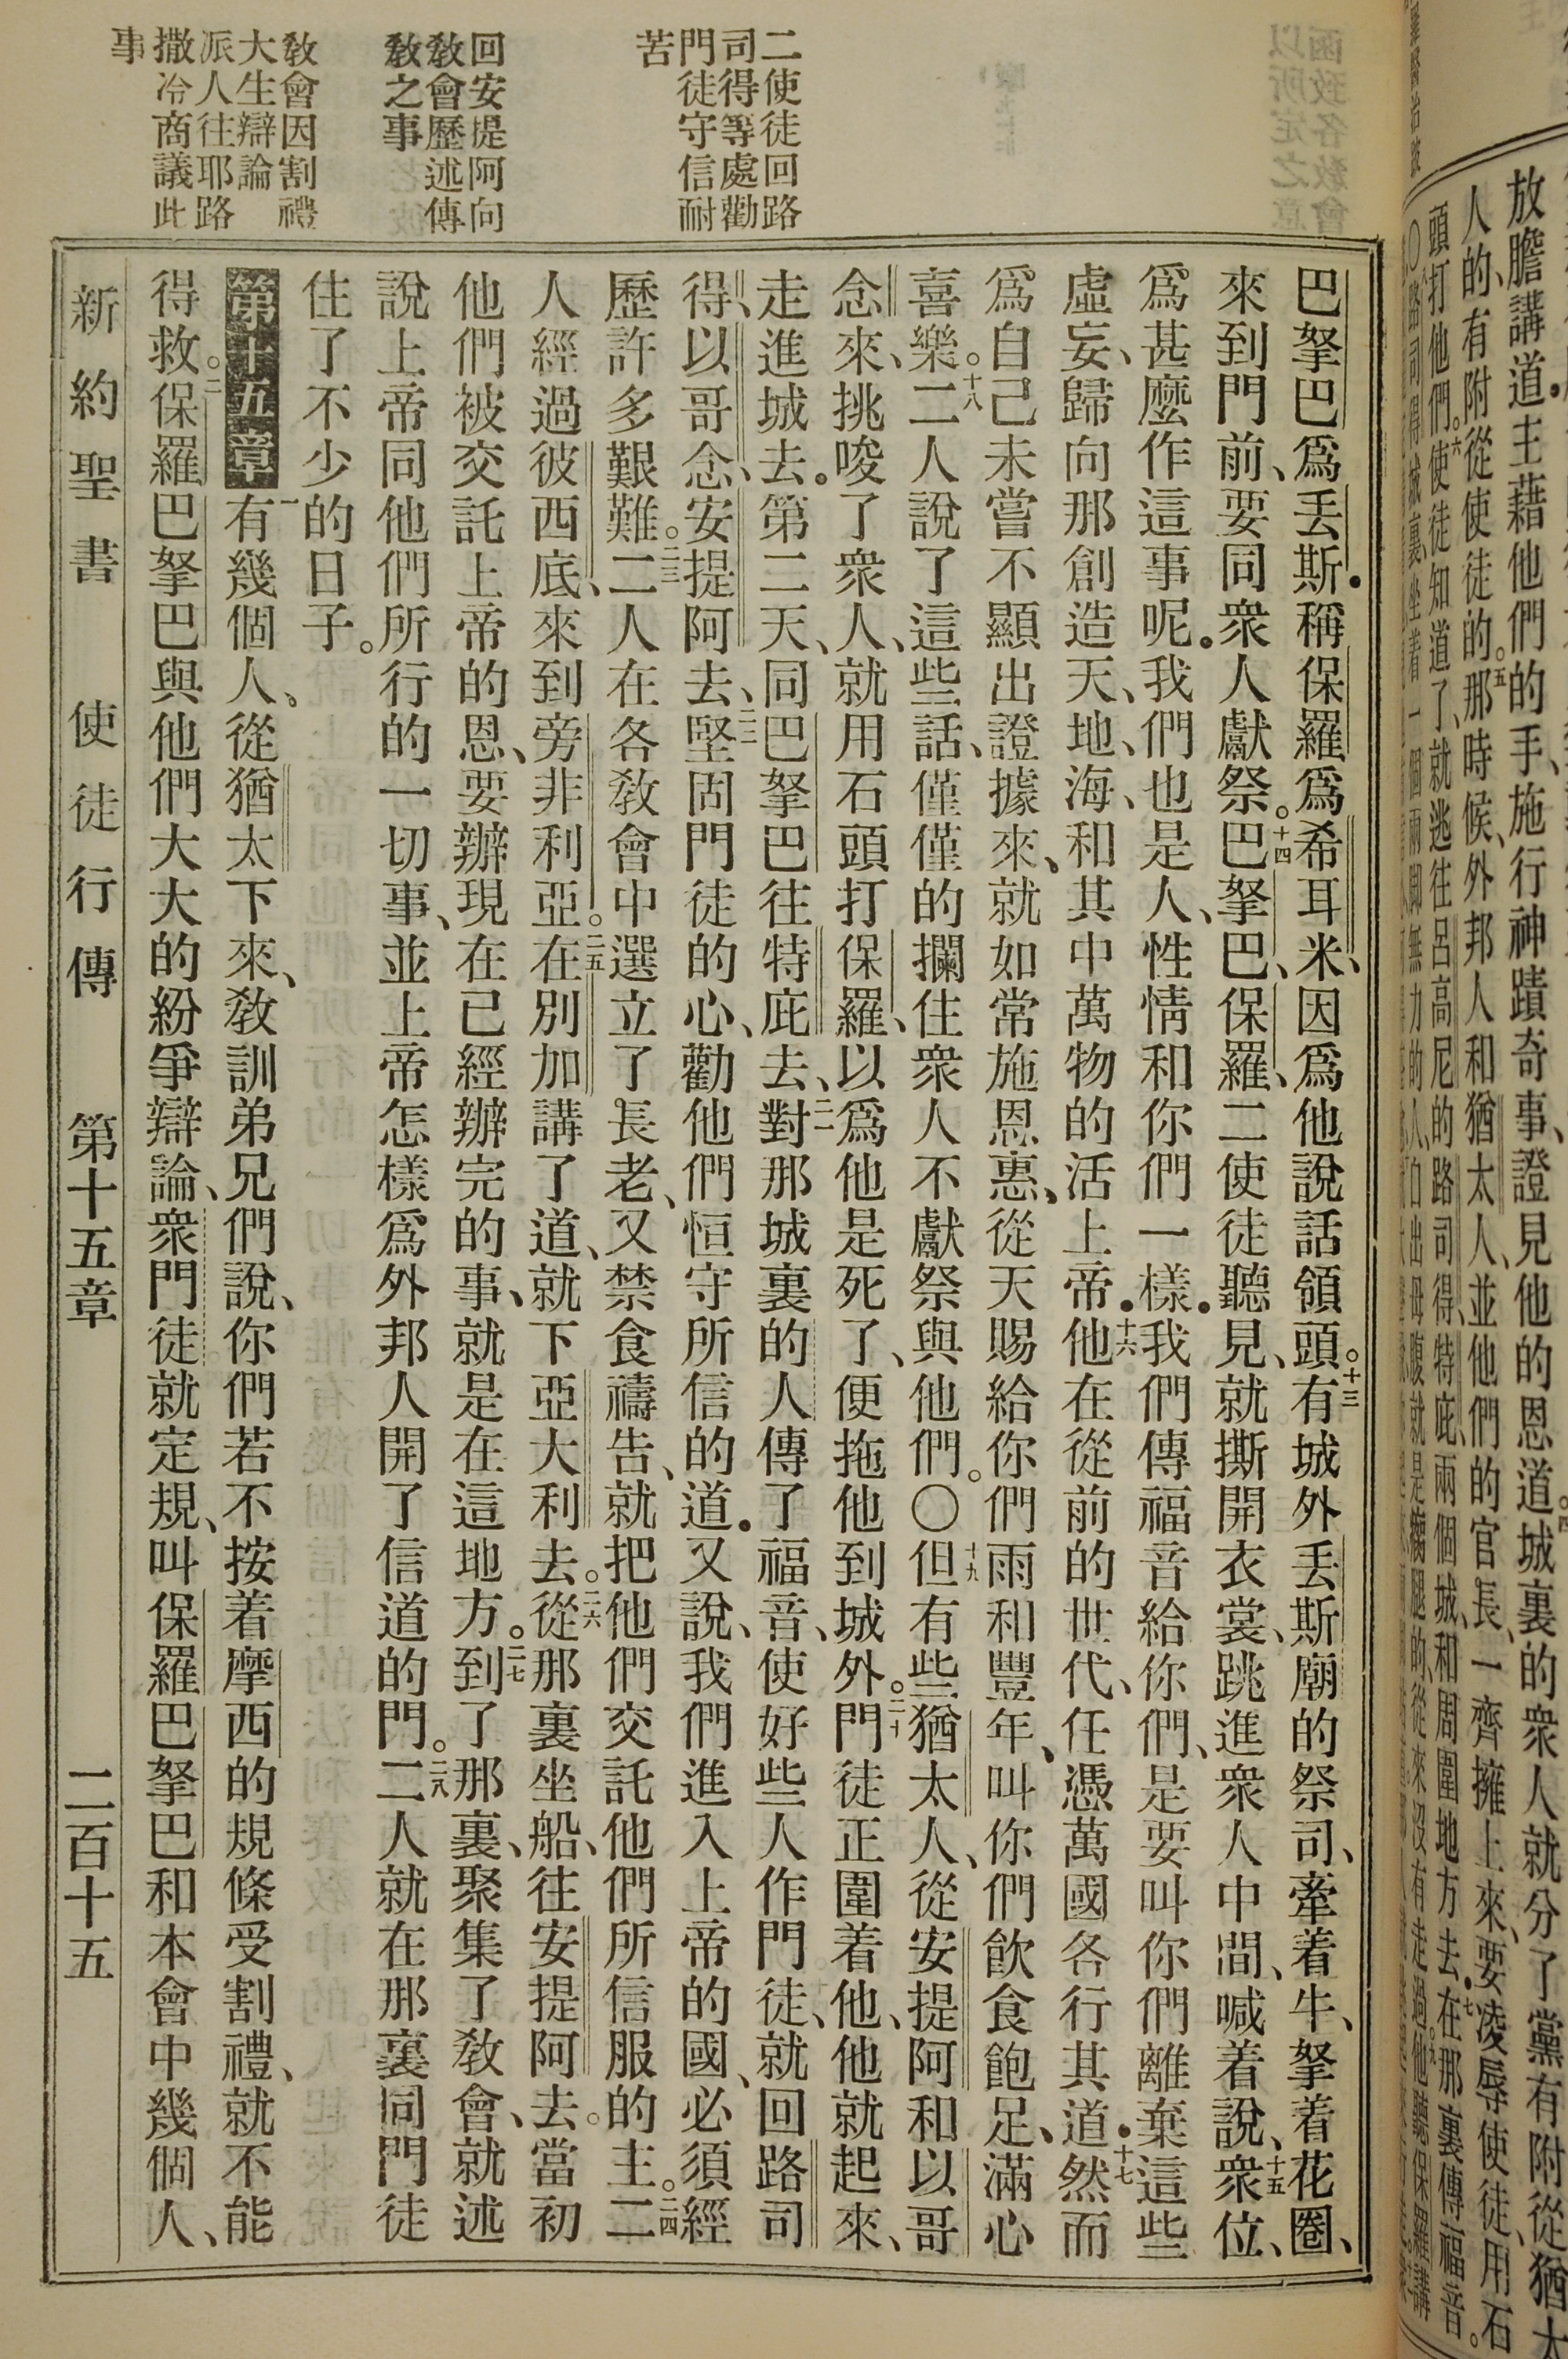 二使徒回路
司得等處勸
門徒守信耐
苦
回安提阿向
敎會歷述傳
敎之事
敎會因割禮
大生辯論
派人往耶路
撒冷商議此
事
巴拏巴爲丟斯.稱保羅爲希耳米、因爲他說話領頭。十三有城外丟斯廟的祭司、牽着牛、拏着花圈、
來到門前、要同衆人獻祭。十四巴拏巴、保羅、二使徒聽見、就撕開衣裳、跳進衆人中間、喊着說、十五衆位、
爲甚麼作這事呢.我們也是人、性情和你們一樣.我們傳福音給你們、是要叫你們離棄這些
虛妄、歸向那創造天、地、海、和其中萬物的活上帝.十六他在從前的世代、任憑萬國各行其道.十七然而
爲自己未嘗不顯出證據來、就如常施恩惠、從天賜給你們雨和豐年、叫你們飮食飽足、滿心
喜樂。十八二人說了這些話、僅僅的攔住衆人不獻祭與他們。〇十九但有些猶太人、從安提阿和以哥
念來、挑唆了衆人、就用石頭打保羅、以爲他是死了、便拖他到城外。二十門徒正圍着他、他就起來、
走進城去.第二天、同巴拏巴往特庇去、二一對那城裏的人傳了福音、使好些人作門徒、就回路司
得、以哥念、安提阿去、二二堅固門徒的心、勸他們恒守所信的道.又說、我們進入上帝的國、必須經
歷許多艱難。二三二人在各敎會中選立了長老、又禁食禱告、就把他們交託他們所信服的主。二四二
人經過彼西底、來到旁非利亞。二五在別加講了道、就下亞大利去。二六從那裏坐船、往安提阿去。當初
他們被交託上帝的恩、要辦現在已經辦完的事、就是在這地方。二七到了那裏、聚集了敎會、就述
說上帝同他們所行的一切事、並上帝怎樣爲外邦人開了信道的門。二八二人就在那裏同門徒
住了不少的日子。
第十五章一有幾個人、從猶太下來、敎訓弟兄們說、你們若不按着摩西的規條受割禮、就不能
得救。二保羅巴拏巴與他們大大的紛爭辯論、衆門徒就定規、叫保羅巴拏巴和本會中幾個人、
新約聖書 使徒行傳 第十五章 二百十五
放膽講道.主藉他們的手、施行神蹟奇事、證見他的恩道。四城裏的衆人就分了黨有附從猶太
人的、有附從使徒的。五那時候、外邦人和猶太人、並他們的官長、一齊擁上來、要凌辱使徒、用石
頭打他們。六使徒知道了、就逃往呂高尼的路司得、特庇兩個城、和周圍地方去.七在那裏傳福音。